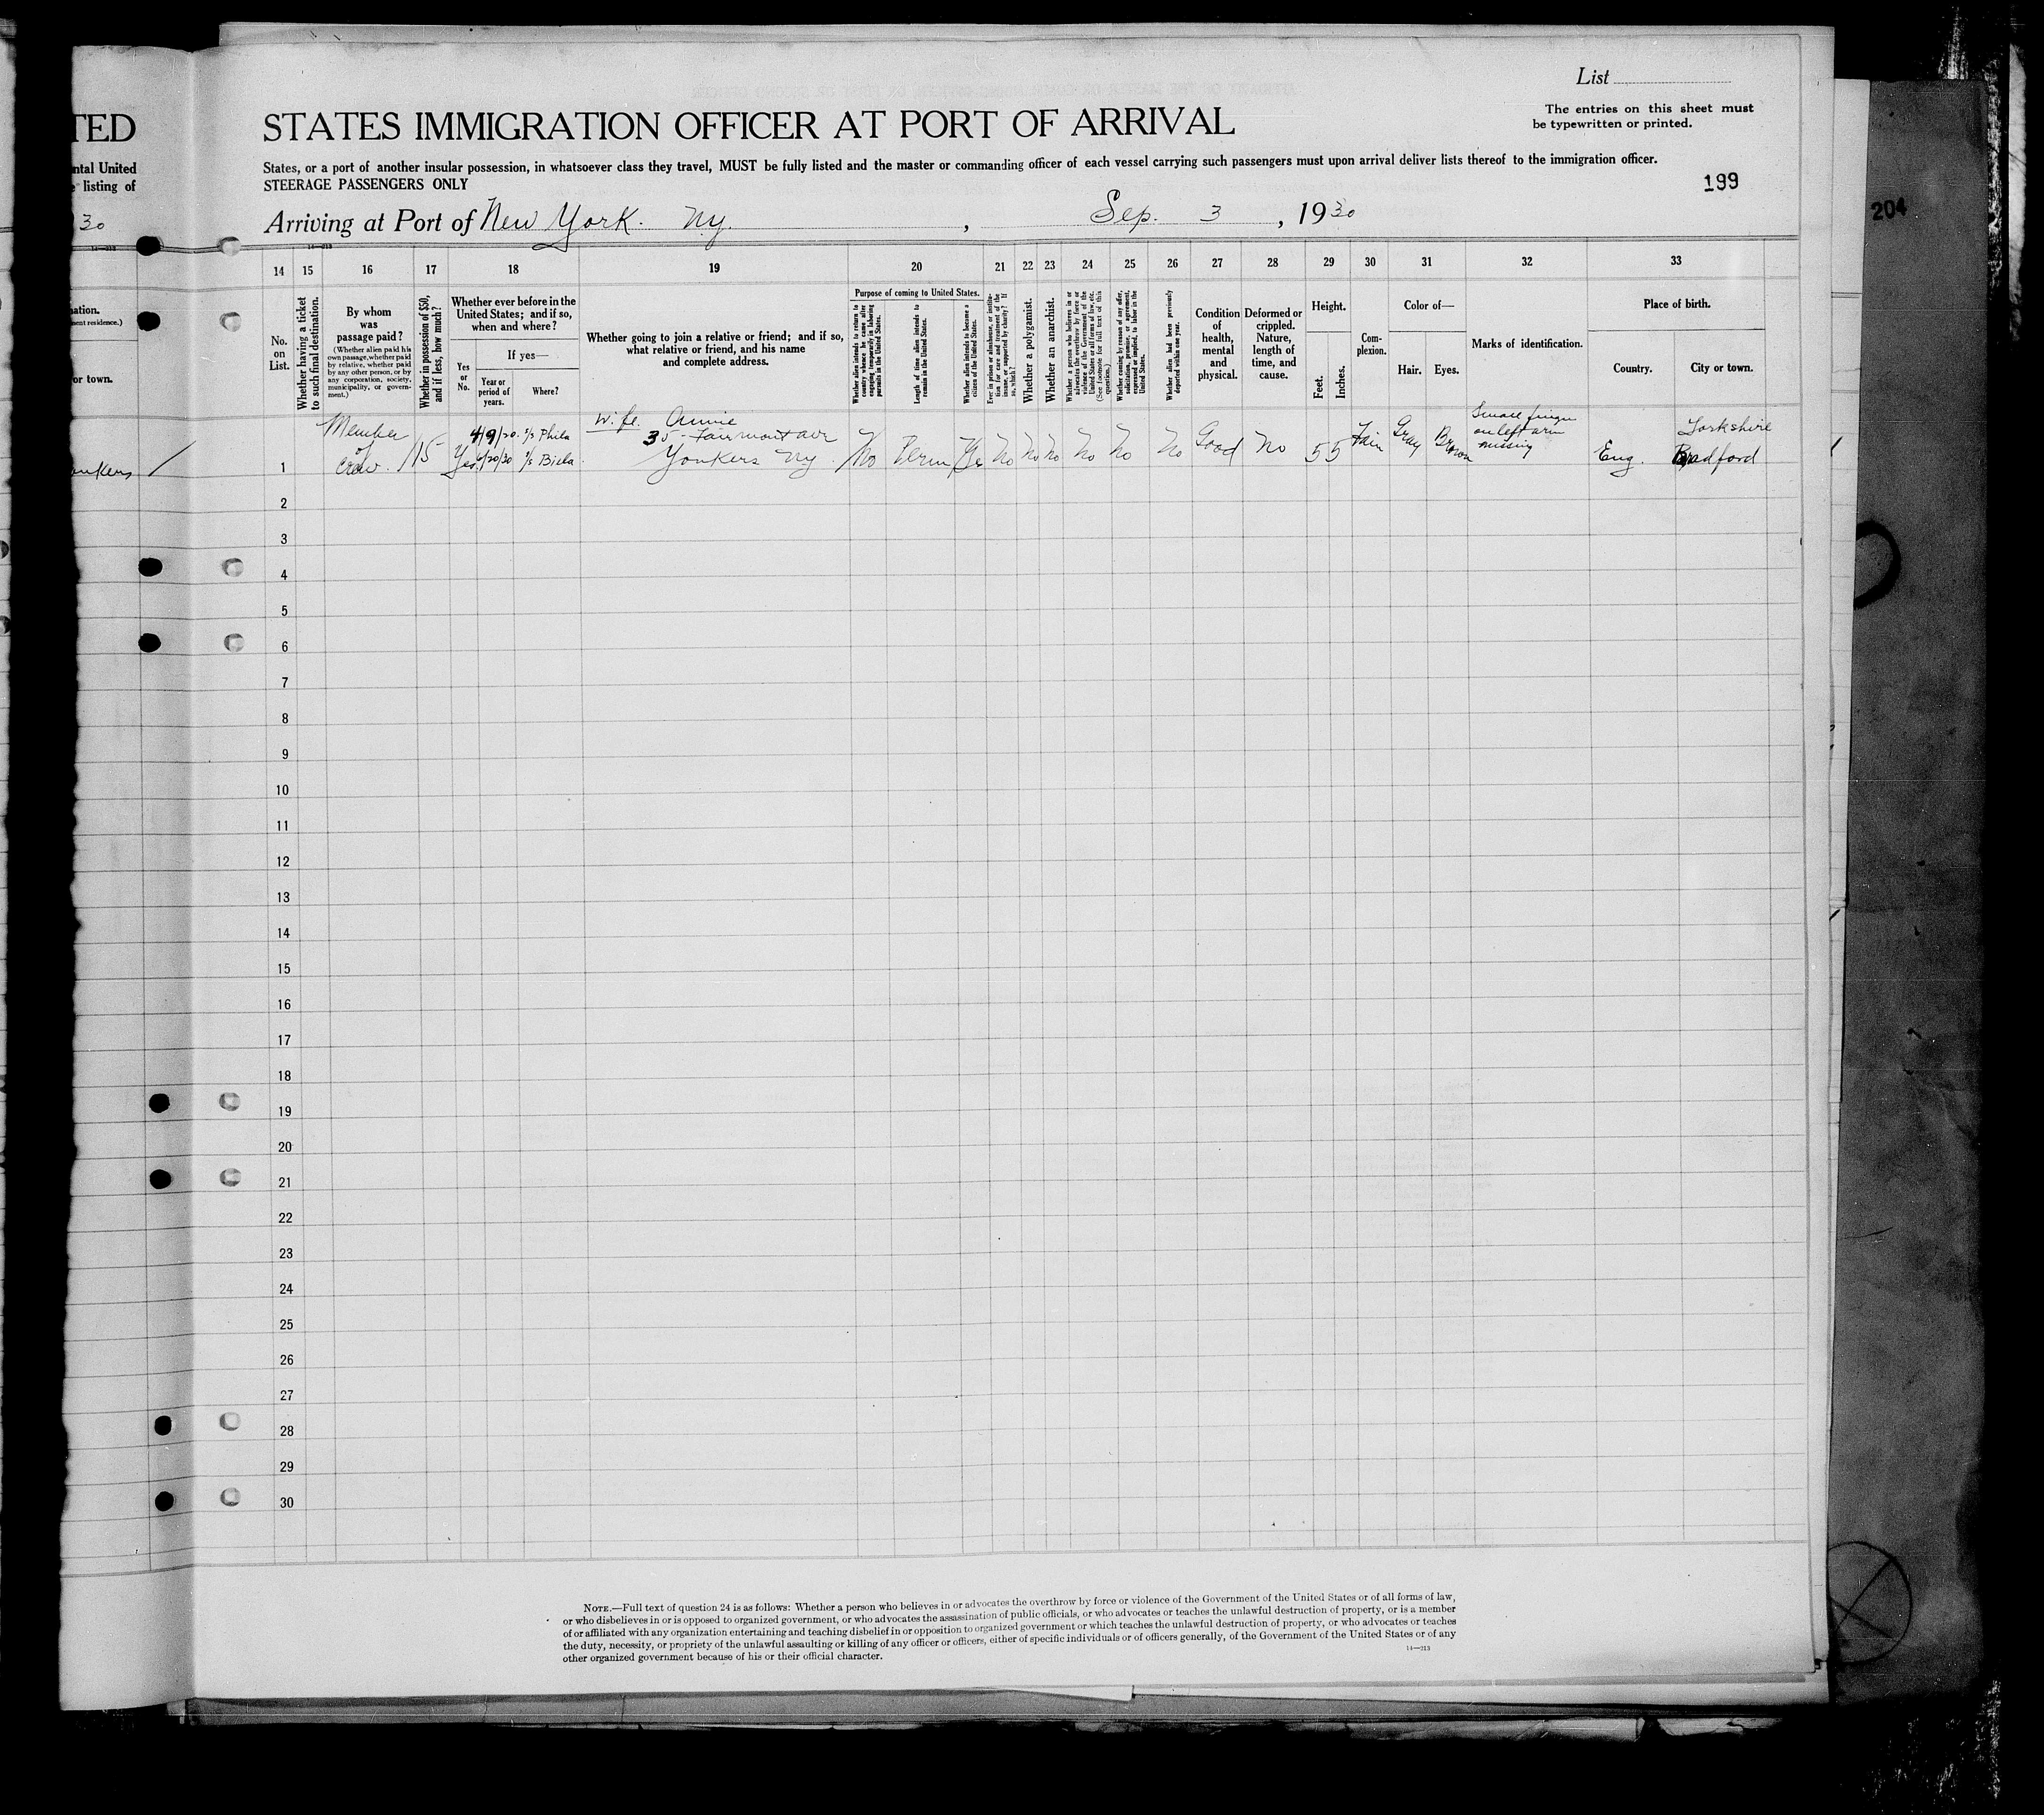 List
The entries on this sheet must
be typewritten or printed.
TED
STATES IMMIGRATION OFFICER AT PORT OF ARRIVAL
ntal United
listing of
States, or a port of another insular possession, in whatsoever class they travel, MUST be fully listed and the master or commanding officer of each vessel carrying such passengers must upon arrival deliver lists thereof to the immigration officer.
STEERAGE PASSENGERS ONLY
199
204
30
Arriving at Port of New York. Ny. , Sep. 3 , 1930
14 15 16 17 18 19 20 21 22 23 24 25 26 27 28 29 30 31 32 33
ation.
ment residence.)
or town.
No.
on
List.
Whether having a ticket
to such final destination.
By whom
was
passage paid?
(Whether alien paid his
own passage, whether paid
by relative, whether paid
by any other person, or by
any corporation, society,
municipality, or govern-
ment.)
Whether in possession of $50,
and if less, how much?
Whether ever before in the
United States; and if so,
when and where?
Yes
or
No.
If yes—
Year or
period of
years.
Where?
Whether going to join a relative or friend; and if so,
what relative or friend, and his name
and complete address.
Purpose of coming to United States.
Whether alien intends to return to
country whence he came after
engaging temporarily in laboring
pursuits in the United States.
Length of time alien intends to
remain in the United States.
Whether alien intends to become a
citizen of the United States.
Ever in prison or almshouse, or institu-
tion for care and treatment of the
insane, or supported by charity? If
so, which?
Whether a polygamist.
Whether an anarchist.
Whether a person who believes in or
advocates the overthrow by force or
violence of the Government of the
United States or all forms of law, etc.
(See footnote for full text of this
question.)
Whether coming by reason of any offer,
solicitation, promise, or agreement,
expressed or implied, to labor in the
United States.
Whether alien had been previously
deported within one year.
Condition
of
health,
mental
and
physical.
Deformed or
crippled.
Nature,
length of
time, and
cause.
Height.
Feet.
Inches.
Com-
plexion.
Color of—
Hair.
Eyes.
Marks of identification.
Place of birth.
Country.
City or town.
onkers /
1
Member
of
crew.
15
Yes
4/9/20. S/S Phila
6/20/30 S/S Biela
wife. Annie
35 - Fairmount ave
Yonkers Ny.
No Perm Yes No No No No No No Good No 5 5 Fair Gray Brown
Small finger
on left arm
missing
Eng.
Yorkshire
Bradford
2
3
4
5
6
7
8
9
10
11
12
13
14
15
16
17
18
19
20
21
22
23
24
25
26
27
28
29
30
NOTE.—Full text of question 24 is as follows: Whether a person who believes in or advocates the overthrow by force or violence of the Government of the United States or of all forms of law,
or who disbelieves in or is opposed to organized government, or who advocates the assassination of public officials, or who advocates or teaches the unlawful destruction of property, or is a member
of or affiliated with any organization entertaining and teaching disbelief in or opposition to organized government or which teaches the unlawful destruction of property, or who advocates or teaches
the duty, necessity, or propriety of the unlawful assaulting or killing of any officer or officers, either of specific individuals or of officers generally, of the Government of the United States or of any
other organized government because of his or their official character.
14—213